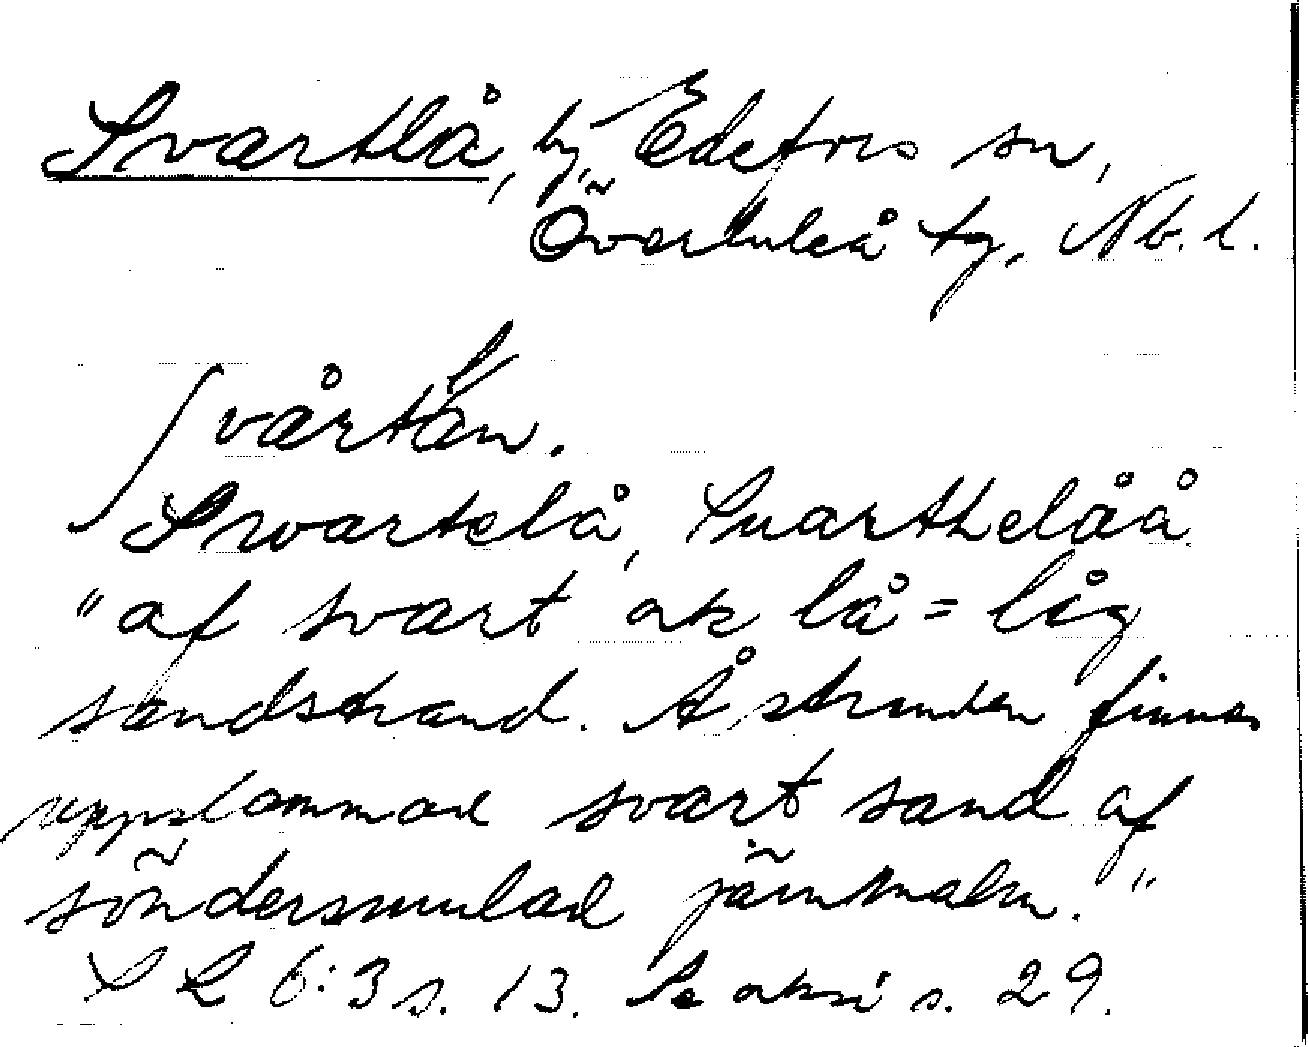 Svartlå, by, Edefors sn,
Överluleå tg, Nb. l.
Swartelå, Suarthelåå
"af svart ok lå = låg
sandstrand. Å stranden finnes
uppslammad svart sand af
söndersmulad järnmalm."
SL 6:3 s. 13. Se also s. 29.